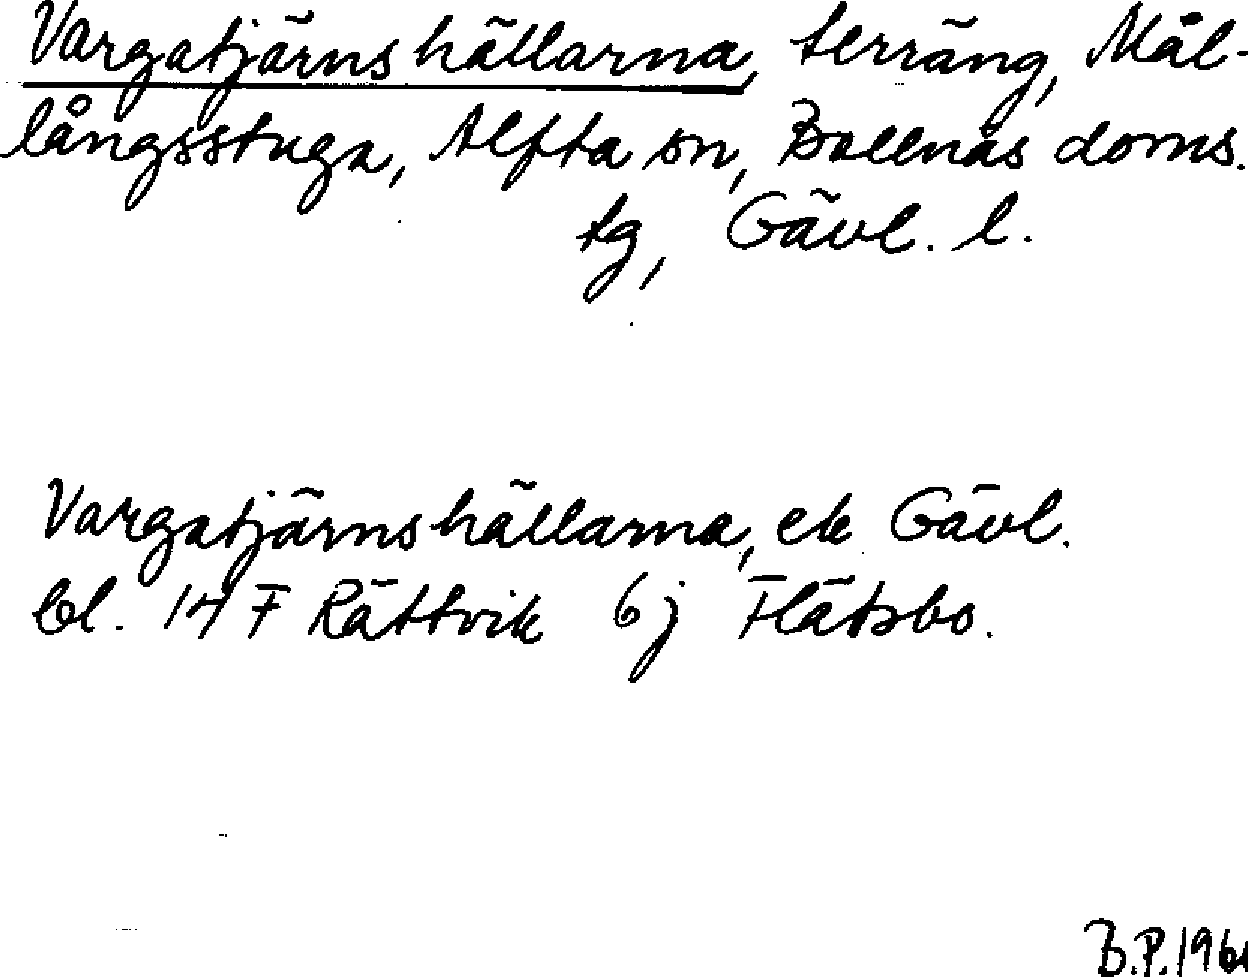 Vargatjärnshällarna, terräng, Mål-
långsstuga, Alfta sn, Bollnäs doms.
tg, Gävl. l.
Vargatjärnshällarna, ek Gävl.
bl. 14 F Rättvik 6j Flätsbo.
B.P.